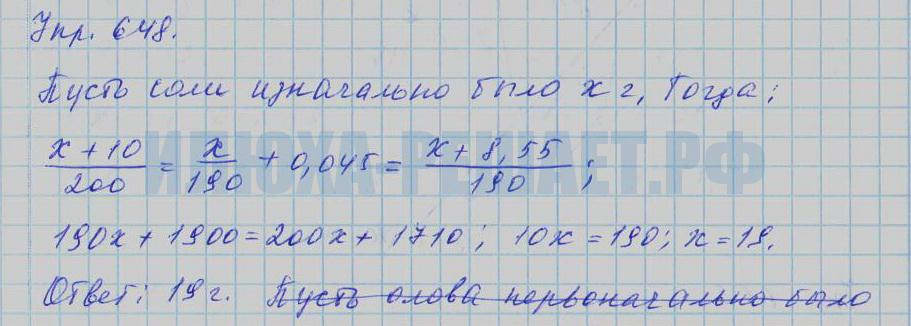 Упр. 648.
Пусть соли изначально было х г, Тогда:
(х + 10)/200 = х/190 + 0,045 = (х + 8,55)/190;
ИЛЮХА-РЕШАЕТ.РФ
190х + 1900 = 200х + 1710; 10х = 190; х = 19.
Ответ: 19 г. Пусть олова первоначально было